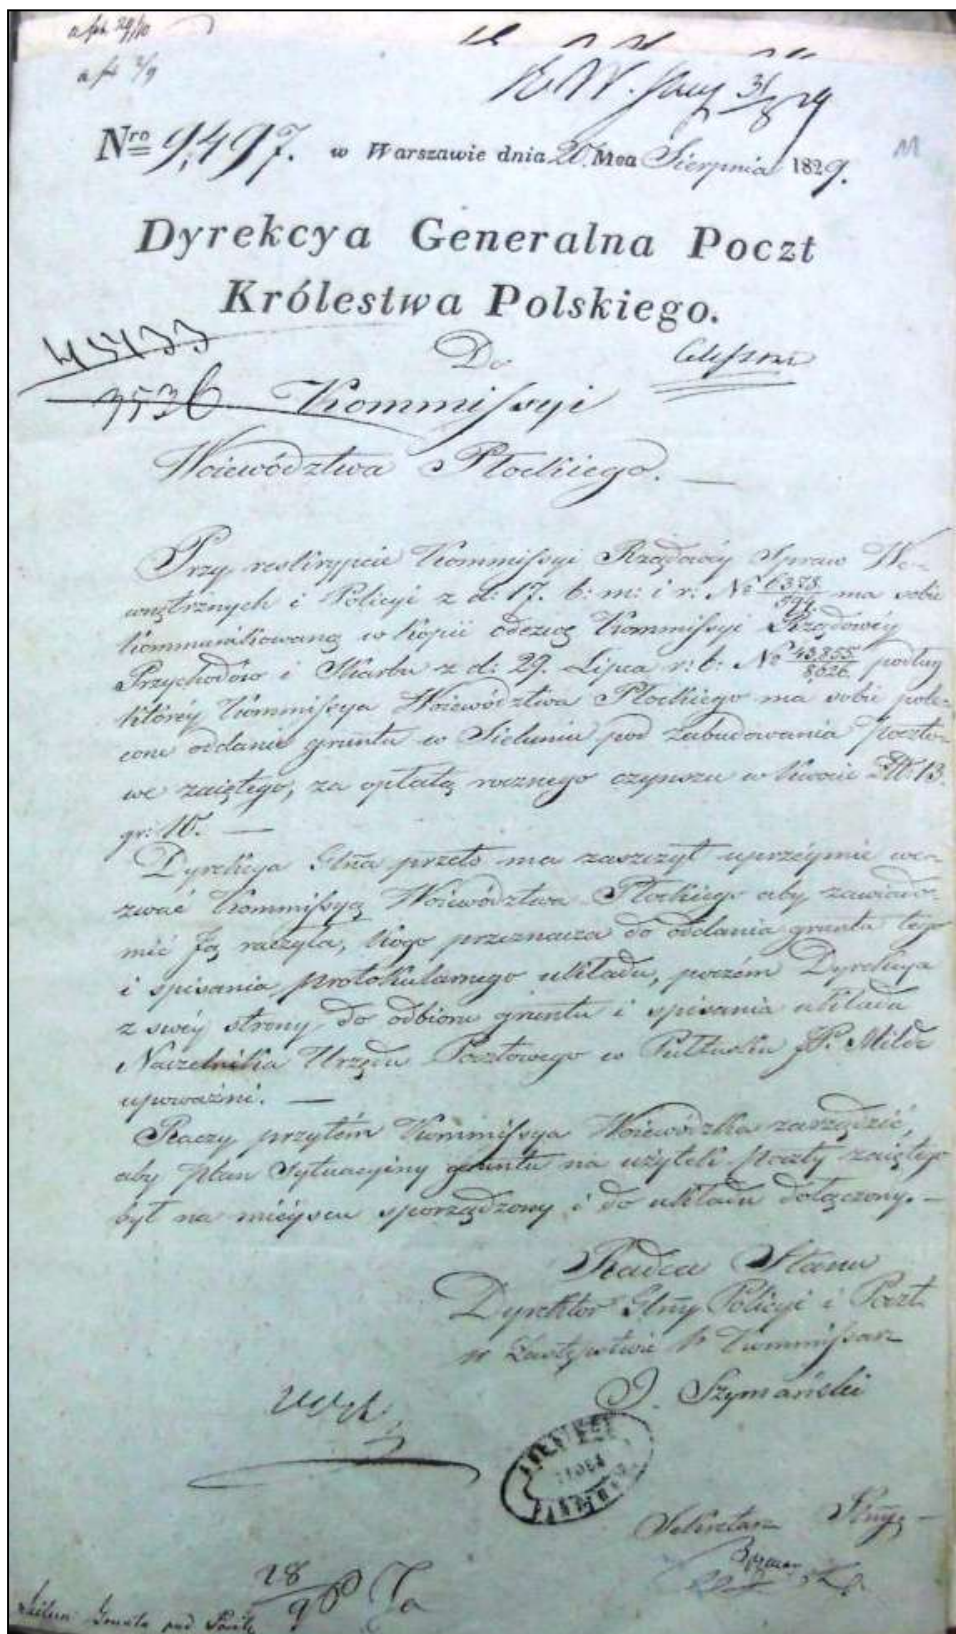 Nro 9,497. w Warszawie dnia 20 Mca Sierpnia 1829.
Dyrekcya Generalna Poczt
Królestwa Polskiego.
Do
Kommissyi
3536
Woiewództwa Płockiego. —
Przy reskrypcie Kommissyi Rządowéy Spraw We-
wnętrznych i Policyi z d: 17. b: m: i r: No 6378/594 ma sobie
kommunikowaną w kopii odezwę Kommissyi Rządowéy
Przychodów i Skarbu z d: 29. Lipca r: b: No 43,855/8,626 podług
któréy Kommissya Woiewództwa Płockiego ma sobie pole-
cone oddanie gruntu w Sieluniu pod zabudowania poczto-
we zaiętego, za opłatą rocznego czynszu w kwocie Złt: 13.
gr: 10. —
Dyrekcya Glna przeto ma zaszczyt uprzéymie we-
zwać Kommissyą Woiewództwa Płockiego aby zawiado-
mić Ją raczyła, kogo przeznacza do oddania gruntu tego
i spisania protokularnego układu, poczém Dyrekcya
z swéy strony do odbioru gruntu i spisania układu
Naczelnika Urzędu Pocztowego w Pułtusku JP. Milde
upoważni. —
Raczy przytém Kommissya Woiewódzka zarządzić,
aby plan sytuacyiny gruntu na użytek poczty zaiętego
był na mieyscu sporządzony i do układu dołączony. —
Radca Stanu
Dyrektor Glny Policyi i Poczt
w Zastępstwie Kommissarz
J. Szymański
Sekretarz
28/9